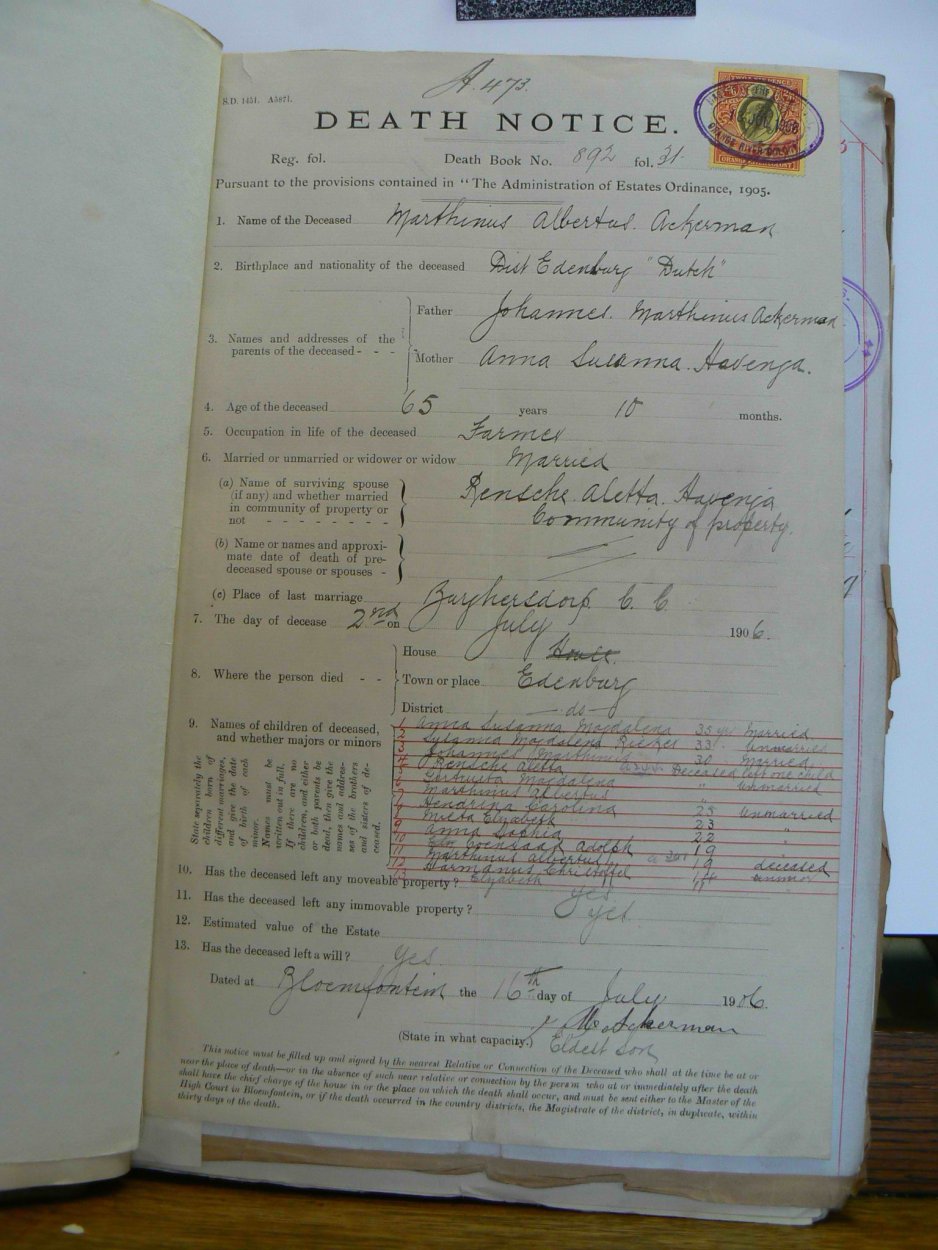 A. 473.
S.D. 1451. A5871.
DEATH NOTICE.
Reg. fol. Death Book No. 892 fol. 31.
Pursuant to the provisions contained in "The Administration of Estates Ordinance, 1905.
1. Name of the Deceased Marthinus Albertus. Ackerman
2. Birthplace and nationality of the deceased Dist Edenburg "Dutch"
3. Names and addresses of the parents of the deceased - - -
Father Johannes. Marthinus Ackerman
Mother Anna Susanna. Havenga.
4. Age of the deceased 65 years 10 months.
5. Occupation in life of the deceased Farmer
6. Married or unmarried or widower or widow Married
(a) Name of surviving spouse (if any) and whether married in community of property or not - - - - - - - -
Rensche. Aletta. Havenga
Community of property.
(b) Name or names and approximate date of death of pre-deceased spouse or spouses -
(c) Place of last marriage Burghersdorp C. C.
7. The day of decease 2nd on July 1906.
8. Where the person died - -
House
Town or place Edenburg
District do
9. Names of children of deceased, and whether majors or minors
State separately the children born of different marriages, and give the date of birth of each minor. Names must be written out in full. If there are no children, and either or both parents be dead, then give the names and addresses of the brothers and sisters of deceased.
1 Anna Susanna Magdalena 35 Married
2 Susanna Magdalena 33 Unmarried
3 Johannes Marthinus 30 Married
4 Rensche Aletta Deceased left one child
5 Magdalena " Unmarried
6 Marthinus Albertus "
Hendrina Carolina 25 Unmarried
Elizabeth 23
9 Anna Sophia 22 "
10 Coenraad Adolph 19
11 Marthinus Albertus 19 deceased
12 Harmanus Christoffel 14
13 Elizabeth 11
10. Has the deceased left any moveable property? yes
11. Has the deceased left any immovable property? yes
12. Estimated value of the Estate
13. Has the deceased left a will? Yes
Dated at Bloemfontein the 16th day of July 1906.
Ackerman
(State in what capacity.) Eldest son
This notice must be filled up and signed by the nearest Relative or Connection of the Deceased who shall at the time be at or
near the place of death—or in the absence of such near relative or connection by the person who at or immediately after the death
shall have the chief charge of the house in or the place on which the death shall occur, and must be sent either to the Master of the
High Court in Bloemfontein, or if the death occurred in the country districts, the Magistrate of the district, in duplicate, within
thirty days of the death.